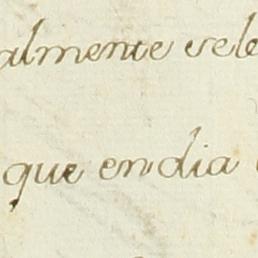 almente vele
que en dia